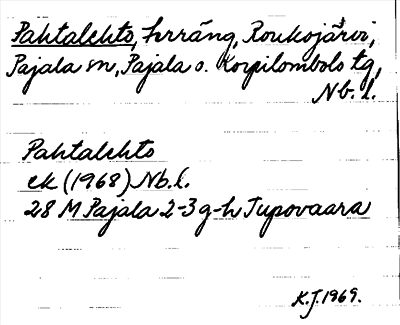 Pahtalehto, terräng, Roukojärvi,
Pajala sn, Pajala o. Korpilombolo tg,
Nb. l.
Pahtalehto
ek (1968) Nb. l.
28 M Pajala 2-3 g-h Jupovaara
K.J. 1969.